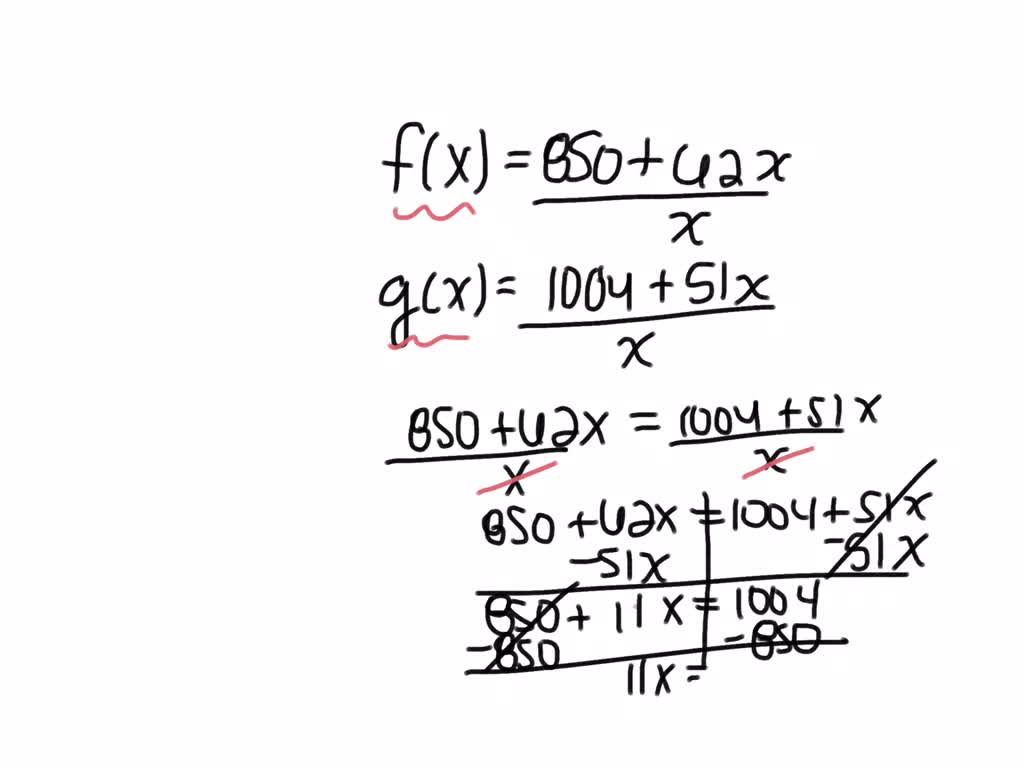 f(x) = 850+62x
x
g(x) = 1004+51x
x
850+62x = 1004+51x
x x
850+62x = 1004+51x
-51x -51x
850+11x = 1004
-850 -850
11x =